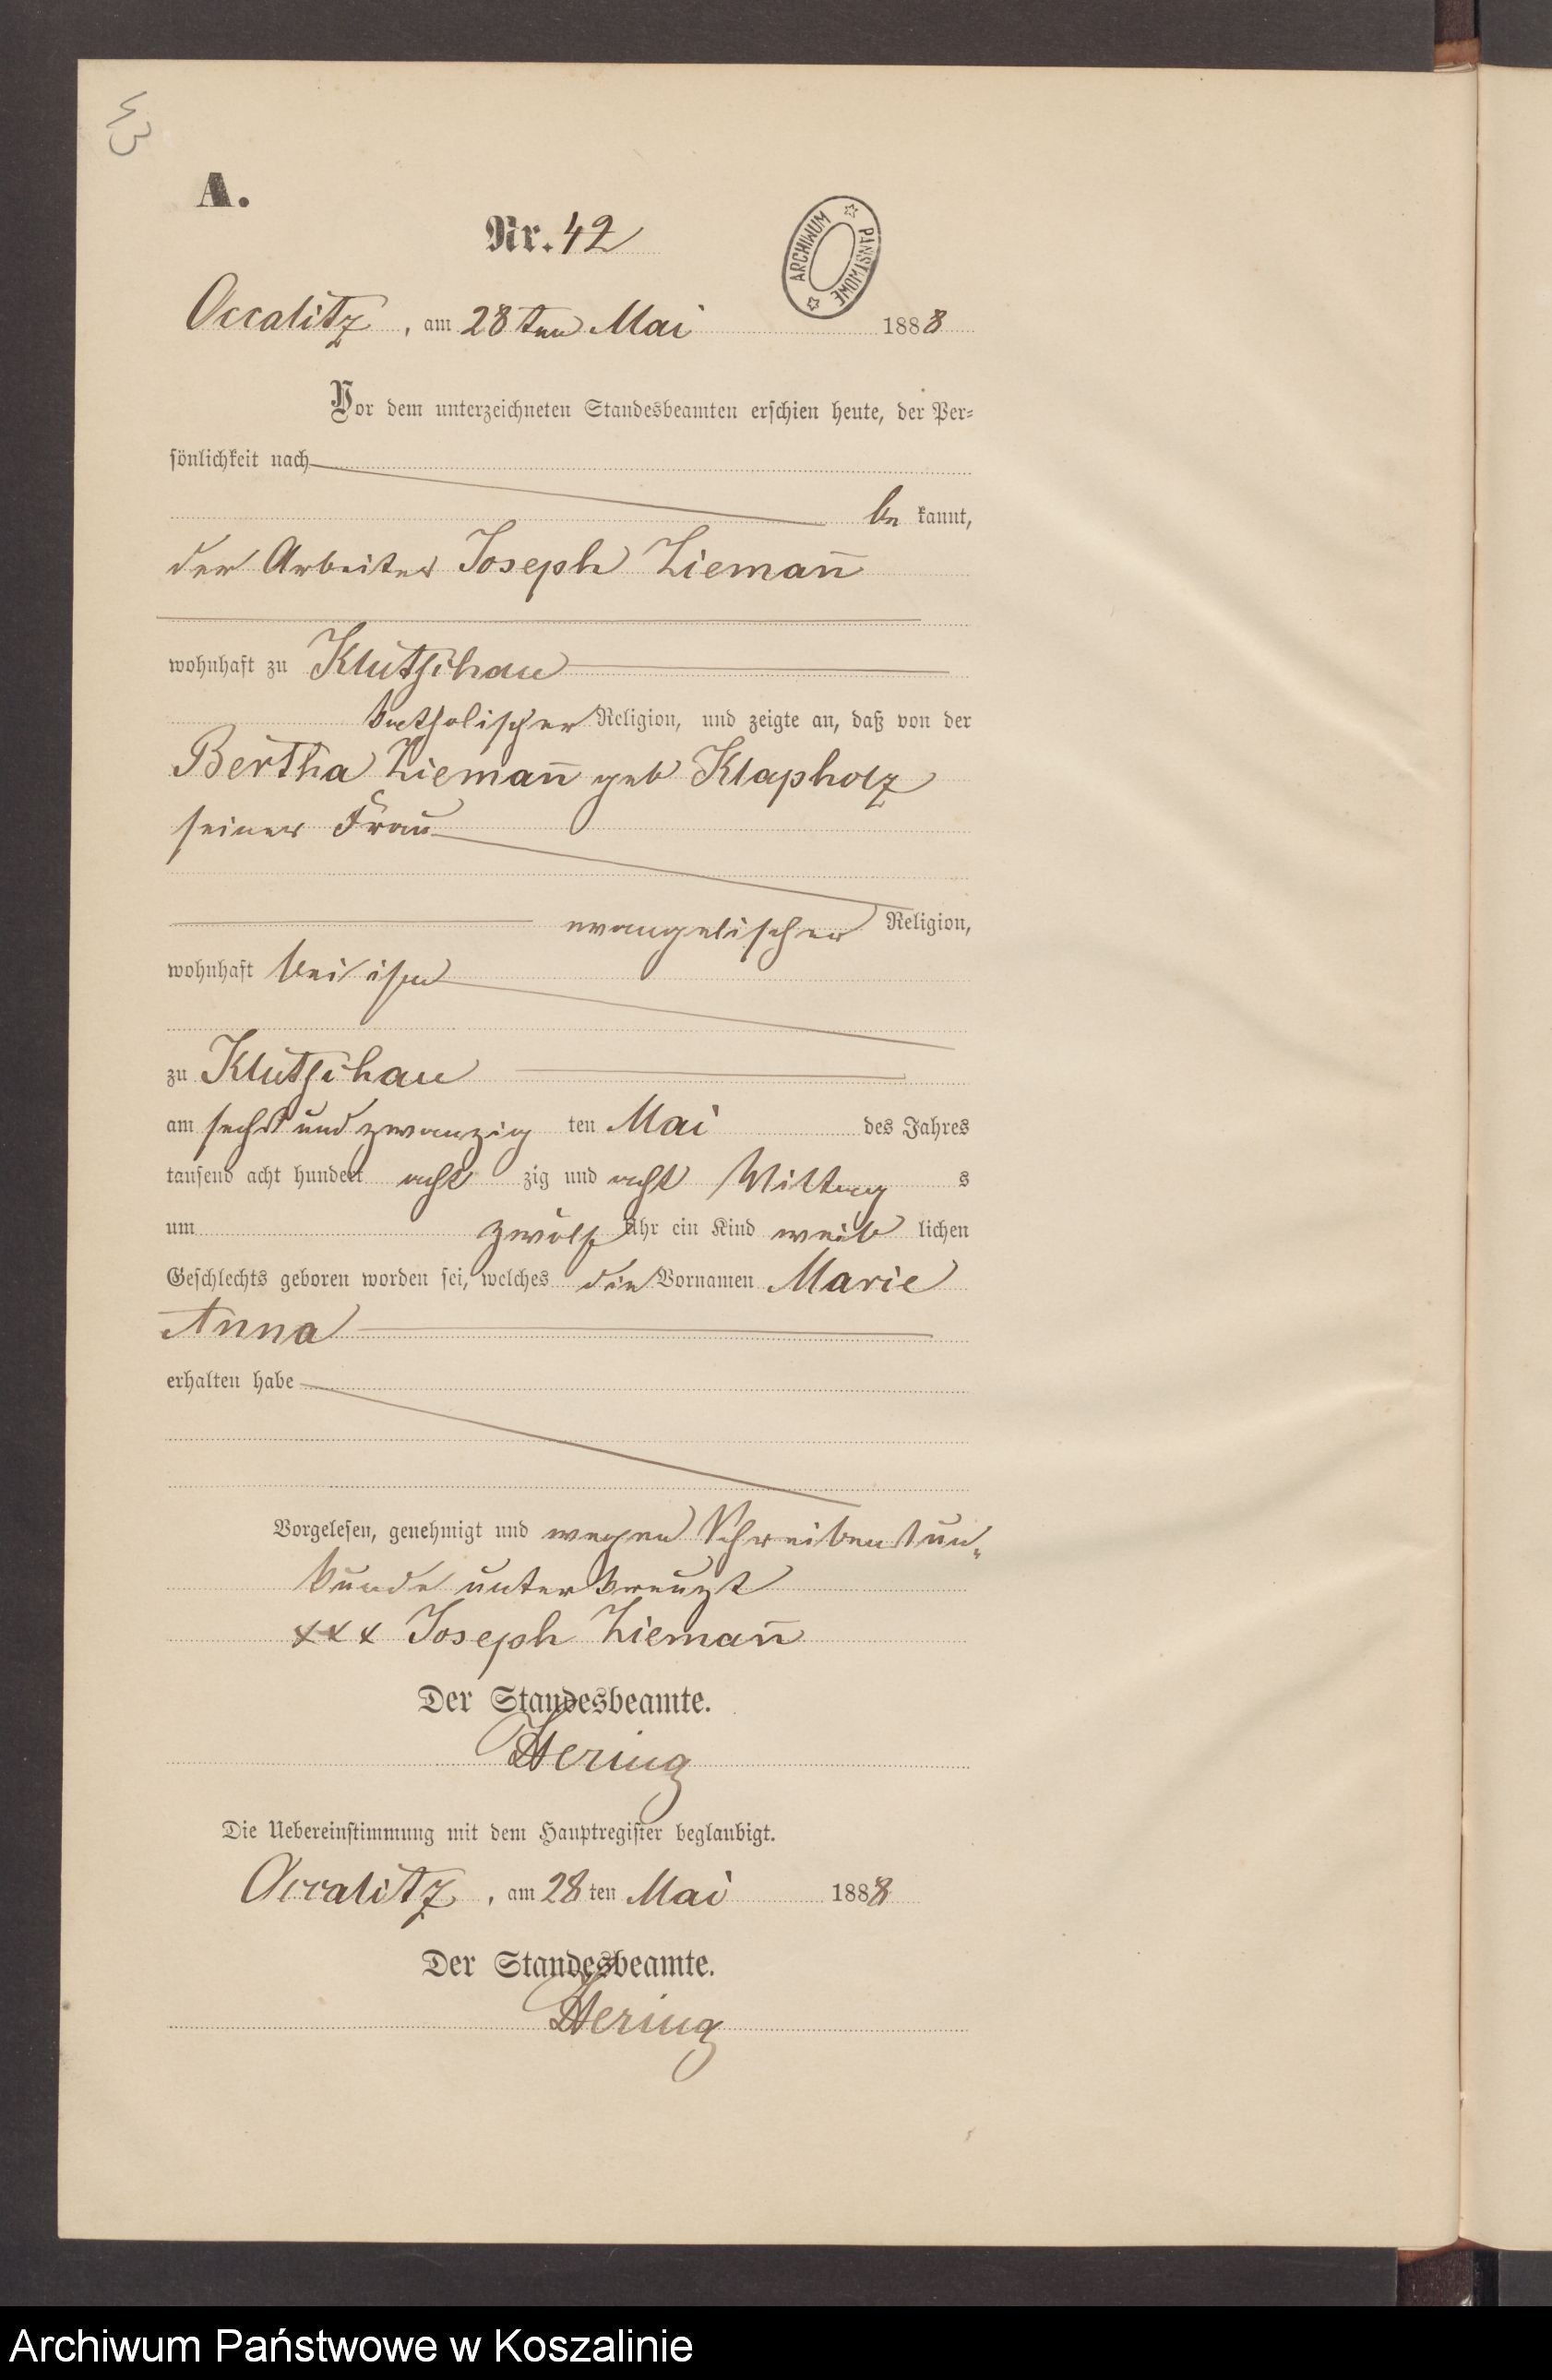 43
A.
Nr. 42
ARCHIWUM PAŃSTWOWE
Occalitz, am 28 ten Mai 1888
Vor dem unterzeichneten Standesbeamten erschien heute, der Per-
sönlichkeit nach
be kannt,
der Arbeiter Joseph Zieman̅
wohnhaft zu Klutschau
katholischer Religion, und zeigte an, daß von der
Bertha Zieman̅ geb Klapholz
seiner Frau
evangelischer Religion,
wohnhaft bei ihm
zu Klutschau
am sechs und zwanzig ten Mai des Jahres
tausend acht hundert acht zig und acht Mittag s
um zwölf Uhr ein Kind weib lichen
Geschlechts geboren worden sei, welches die Vornamen Marie
Anna
erhalten habe
Vorgelesen, genehmigt und wegen Schreibensun-
kunde unterkreuzt
xxx Joseph Zieman̅
Der Standesbeamte.
Hering
Die Uebereinstimmung mit dem Hauptregister beglaubigt.
Occalitz, am 28 ten Mai 1888
Der Standesbeamte.
Hering
Archiwum Państwowe w Koszalinie